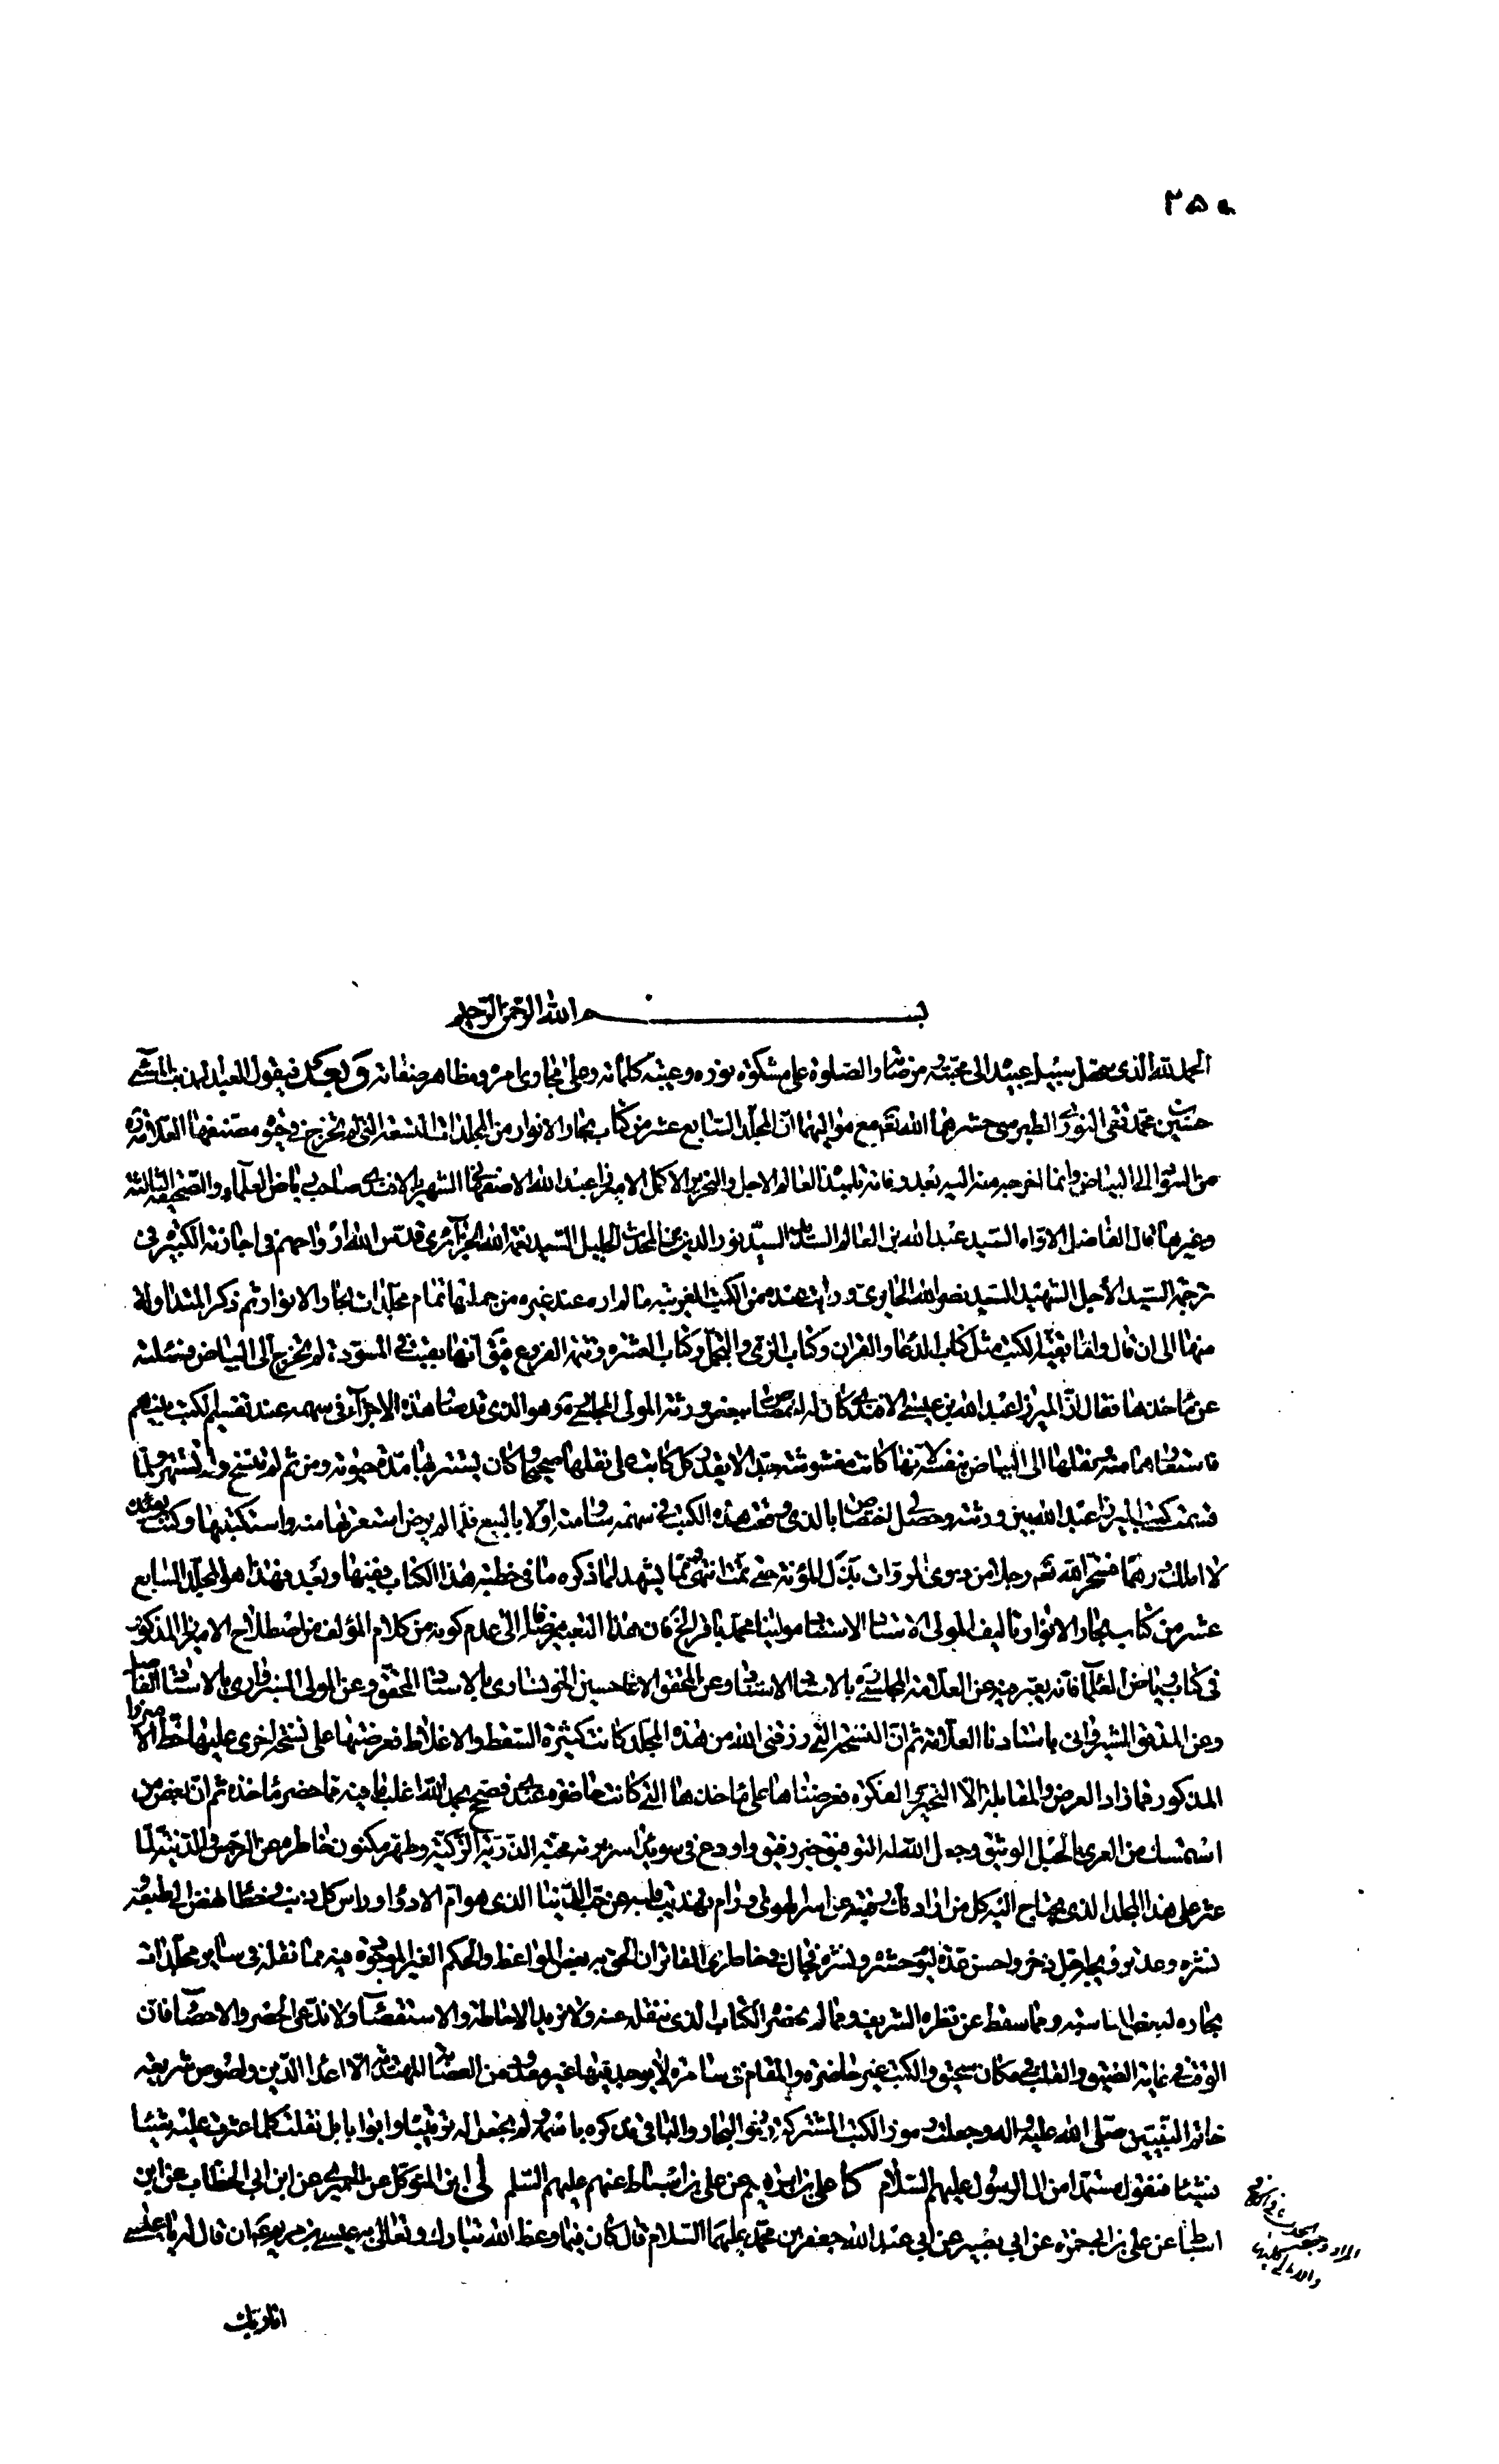 ٢٥٠
بسم الله الرحمن الرحيم
الحمد لله الذى سبيل عبيده الى محبته مرضاته والصلوة على مشكوة نوره وعيبة كلماته وعلى مجارى امره ومظاهر صفاته وبعد فيقول العبد المذنب المسئ
حسين بن محمد تقى النورى الطبرسى حشرهما الله تع مع مواليهما ان المجلد السابع عشر من كتاب بحار الانوار من المجلدات التى لم تخرج فى حيوة مصنفها العلامة ره
من السواد الى البياض وانما اخرجه منه اليه بعد وفاته تلميذه العالم الاجل والنحرير الاكمل الاميرزا عبد الله الاصفهانى الشهير بالافندى صاحب رياض العلماء والصحيفة الثالثة
وغيرها قال الفاضل الاواه السيد عبد الله بن العالم السيد نور الدين بن المحدث الجليل السيد نعمة الله الجزايرى قدس الله ارواحهم فى اجازته الكبيرة فى
ترجمة السيد الاجل الشهيد السيد نصر الله الحايرى ورايت عنده من الكتب الغريبة ما لم اره عند غيره من جملتها تمام مجلدات بحار الانوار ثم ذكر المتداولة
منها الى ان قال واما بقية الكتب مثل كتاب الدعاء والقران وكتاب الزى والتجمل وكتاب العشرة وتتمة الفروع فهى انها بقيت فى المسودة لم تخرج الى البياض فسئلته
عن ماخذها فقال ان الميرزا عبد الله بن عيسى الافندى كان له اختصاص ببعض ورثة المولى المجلسى وهو الذى قد صارت هذه الاجزاء فى سهمه عند تقسيم الكتب بينهم
فاستعارها منه ونقلها الى البياض بنفسه لانها كانت مغشوشة جدا لا يقدر كل كاتب على نقلها صحيحا وكان يستتر بها مدة حيوته ومن ثم لم تنسخ ولم تشتهر ولما
قسمت كتب الميرزا عبد الله بين ورثته وحصل لى اختصاص بالذى وقعت هذه الكتب فى سهمه ساومته اولا بالبيع فلما لم يرض استعرتها منه واستكتبتها وكنت يومئذ
لا املك درهما فسخر الله تع رجلا من ذوى المروات بذل المؤنة حتى تمت انتهى ومما يشهد لما ذكره ما فى خطبة هذا الكتاب ففيها وبعد فهذا هو المجلد السابع
عشر من كتاب بحار الانوار تاليف المولى الاستاد الاستناد مولينا محمد باقر الخ فان هذا التعبير مضافا الى عدم كونه من كلام المؤلف من اصطلاح الاميرزا المذكور
فى كتاب رياض العلماء فانه يعبر فيه عن العلامة المجلسى ره بالاستاد الاستناد وعن المحقق الاغا حسين الخونسارى بالاستاد المحقق وعن المولى السبزوارى بالاستاد الفاضل
وعن المدقق الشيروانى باستادنا العلامة ثم ان النسخة التى رزقنى الله من هذه المجلد كانت كثيرة السقط والاغلاط فعرضتها على نسخة اخرى عليها خط الاميرزا
المذكور فما زاد العرض والمقابلة الا التحير فى الفكرة فعرضناها على ماخذها التى كانت حاضرة عندى فصح بحمد الله اغلب ما فيه مما حضر ماخذه ثم ان بعض من
استمسك من العرى بالحبل الوثيق وجعل الله له التوفيق خير رفيق واودع فى سويداء سريرته محبة الذرية الزكية وطهر مكنون خاطره عن الرجس والدنية لما
عثر على هذا المجلد الذى يحتاج اليه كل من اراد فك رقبته عن اسر الهوى ورام تهذيب قلبه عن حب الدنيا الذى هو ام الادواء وراس كل ذنب وخطاء نهض الى طبعه و
نشره وعده خير ذخر واحسن عدة ليوم حشره ونشره فجال فى خاطرى الفاتر ان الحق به بعض المواعظ والحكم الغير الموجودة فيه مما نقله فى ساير مجلدات
بحاره لبعض المناسبة ومما سقط عن نظره الشريف ومما لم يحضره الكتاب الذى ننقله عنه ولا نريد الاحاطة والاستقصاء ولا ندعى الحصر والاحصاء فان
الوقت فى غاية الضيق والقلب فى مكان سحيق والكتب غير حاضرة والمقام فى سامرة لا يوجد فيها غير معدود من العصابة المهتدية الا اعداء الدين ولصوص شريعة
خاتم النبيين صلى الله عليه واله وجعلت رموز الكتب المشتركة رموز البحار والباقى نذكره باسمه ولم نجعل له ترتيبا وابوابا بل نقلت كلما عثرت عليه شيئا
فشيئا فنقول مستمدا من ال الرسول عليهم السلام كا على بن ابرهيم عن على بن اسباط عنهم عليهم السلم لى ابن المتوكل عن الحميرى عن ابن ابى الخطاب عن ابن
اسباط عن على بن ابى حمزة عن ابى بصير عن ابى عبد الله جعفر بن محمد عليهما السلام قال كان فيما وعظ الله تبارك وتعالى به عيسى بن مريم عم ان قال له يا عيسى
انا ربك